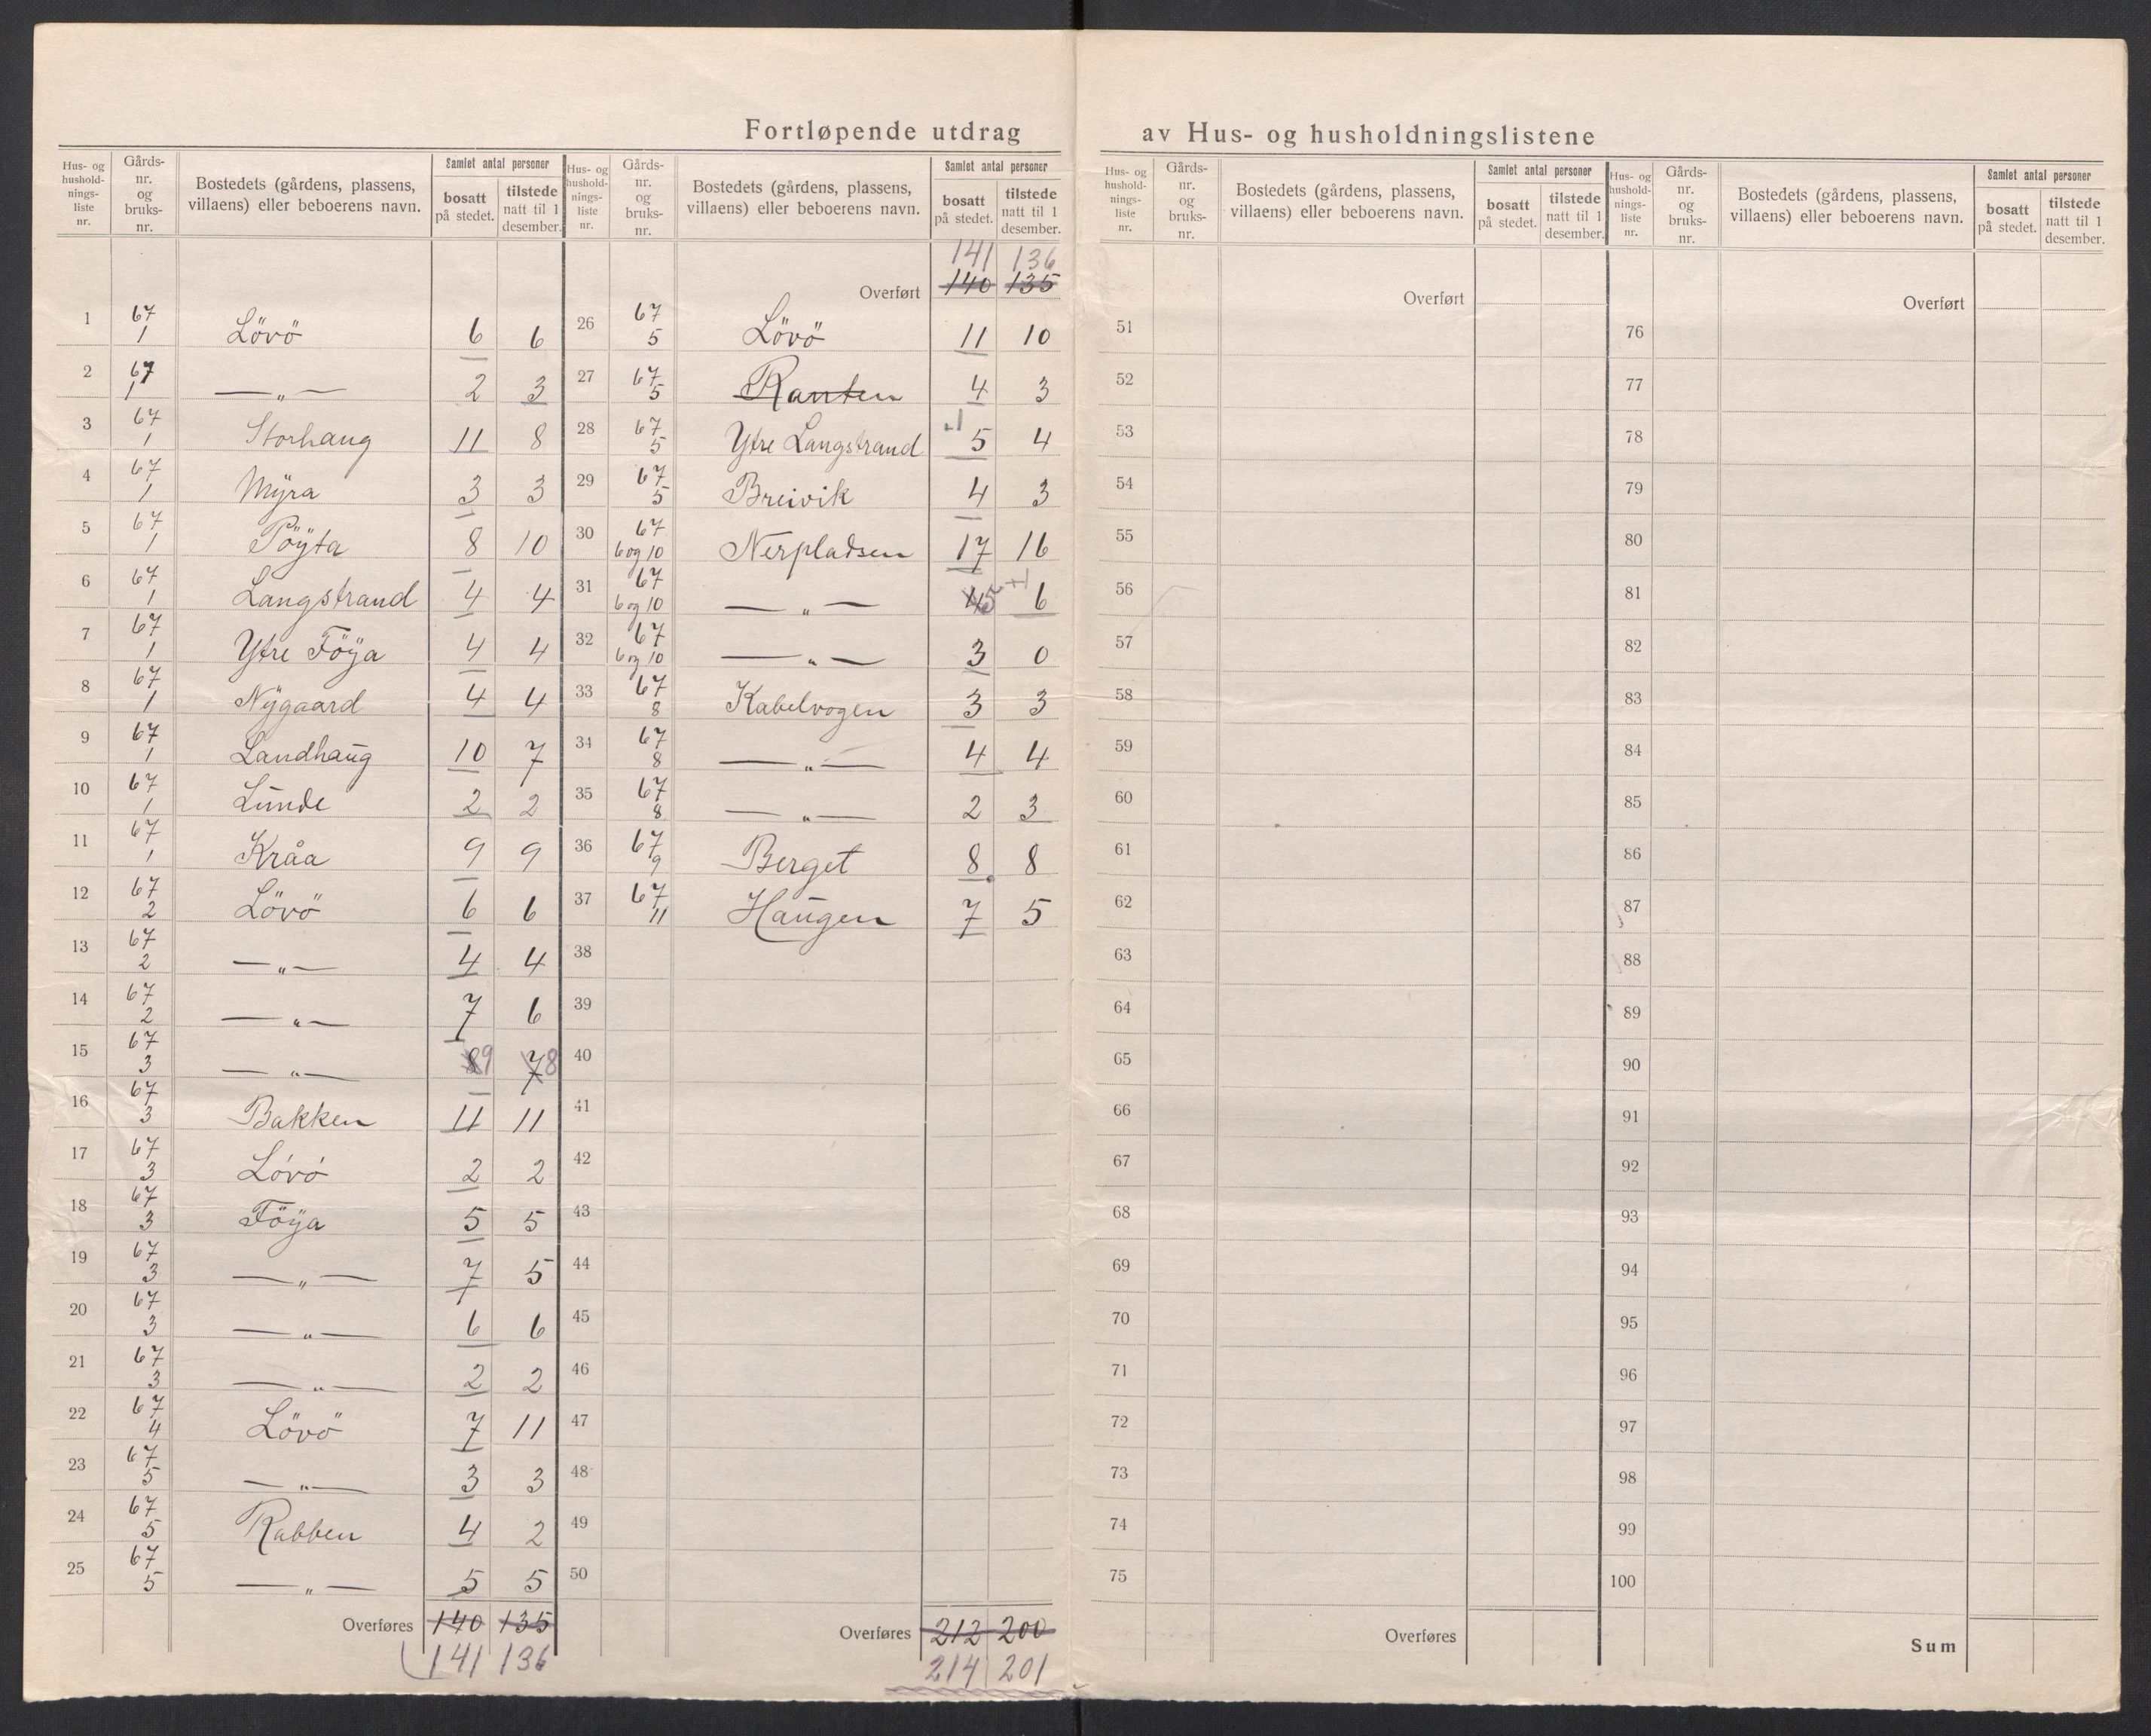 Fortløpende utdrag av Hus- og husholdningslistene
Hus- og hushold-nings-liste nr. | Gårds-nr. og bruks-nr. | Bostedets (gårdens, plassens, villaens) eller beboerens navn. | Samlet antal personer | bosatt på stedet. | tilstede natt til 1 desember.
1 67 1 Lövö 6 6
2 67 1 — „ — 2 3
3 67 1 Storhaug 11 8
4 67 1 Myra 3 3
5 67 1 Pöyta 8 10
6 67 1 Langstrand 4 4
7 67 1 Ytre Föya 4 4
8 67 1 Nygaard 4 4
9 67 1 Landhaug 10 7
10 67 1 Lunde 2 2
11 67 1 Kråa 9 9
12 67 2 Lövö 6 6
13 67 2 — „ — 4 4
14 67 2 — „ — 7 6
15 67 3 — „ — 8 9 7 8
16 67 3 Bakken 11 11
17 67 3 Lóvó 2 2
18 67 3 Föya 5 5
19 67 3 — „ — 7 5
20 67 3 — „ — 6 6
21 67 3 — „ — 2 2
22 67 4 Lövö 7 11
23 67 5 — „ — 3 3
24 67 5 Rabben 4 2
25 67 5 — „ — 5 5
Overføres 140 135
141 136
Hus- og hushold-nings-liste nr. | Gårds-nr. og bruks-nr. | Bostedets (gårdens, plassens, villaens) eller beboerens navn. | Samlet antal personer | bosatt på stedet. | tilstede natt til 1 desember.
141 136
Overført 140 135
26 67 5 Lövö 11 10
27 67 5 Ranten 4 3
28 67 5 Ytre Langstrand 5 4
29 67 5 Breivik 4 3
30 67 6 og 10 Nerpladsen 17 16
31 67 6 og 10 — „ — 4 5 +1 6
32 67 6 og 10 — „ — 3 0
33 67 8 Kabelvogen 3 3
34 67 8 — „ — 4 4
35 67 8 — „ — 2 3
36 67 9 Berget 8 8
37 67 11 Haugen 7 5
38
39
40
41
42
43
44
45
46
47
48
49
50
Overføres 212 200
214 201
Hus- og hushold-nings-liste nr. | Gårds-nr. og bruks-nr. | Bostedets (gårdens, plassens, villaens) eller beboerens navn. | Samlet antal personer | bosatt på stedet. | tilstede natt til 1 desember.
Overført
51
52
53
54
55
56
57
58
59
60
61
62
63
64
65
66
67
68
69
70
71
72
73
74
75
Overføres
Hus- og hushold-nings-liste nr. | Gårds-nr. og bruks-nr. | Bostedets (gårdens, plassens, villaens) eller beboerens navn. | Samlet antal personer | bosatt på stedet. | tilstede natt til 1 desember.
Overført
76
77
78
79
80
81
82
83
84
85
86
87
88
89
90
91
92
93
94
95
96
97
98
99
100
Sum